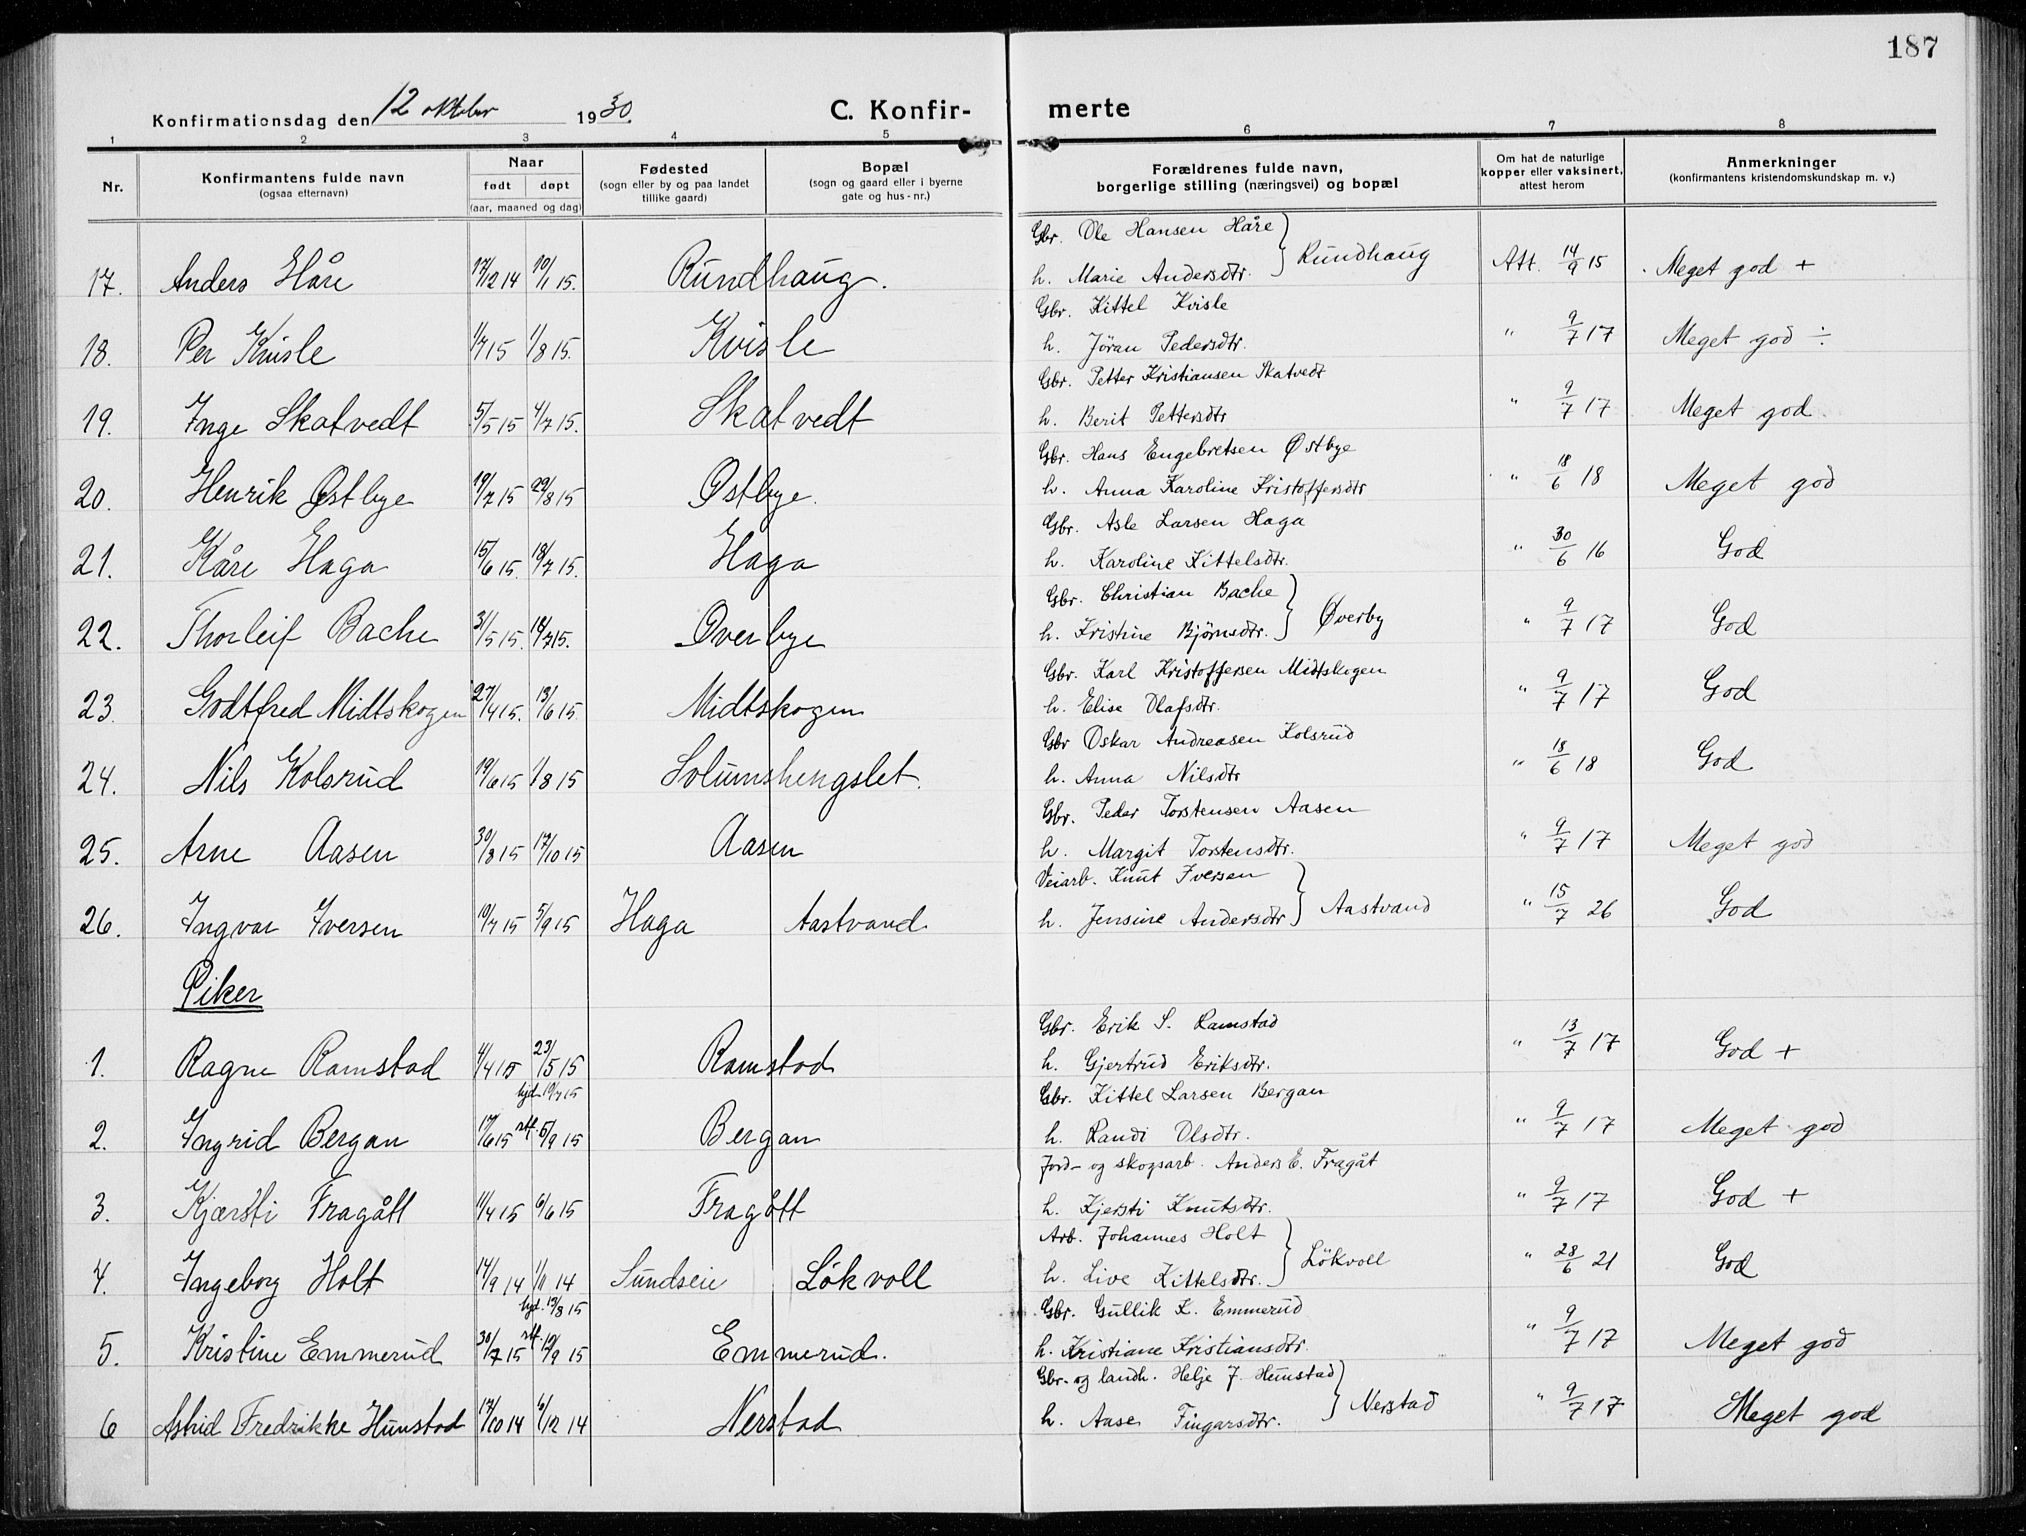 187
Konfirmationsdag den 12 oktober 1930. C. Konfir- merte
1 2 3 4 5 6 7 8
Nr. Konfirmantens fulde navn (ogsaa efternavn) Naar født døpt (aar, maaned og dag) Fødested (sogn eller by og paa landet tillike gaard) Bopæl (sogn og gaard eller i byerne gate og hus-nr.) Forældrenes fulde navn, borgerlige stilling (næringsvei) og bopæl Om hat de naturlige kopper eller vaksinert, attest herom Anmerkninger (konfirmantens kristendomskundskap m. v.)
Gbr. Ole Hansen Håre
17. Anders Håre 17/12 14 10/1 15. Rundhaug. h. Marie Andersdtr. } Rundhaug Att. 14/9 15 Meget god +
Gbr. Kittel Kvisle
18. Per Kvisle 1/7 15 1/8 15. Kvisle h. Jöran Pedersdtr. " 9/7 17 Meget god ÷
Gbr. Petter Kristiansen Skatvedt
19. Inge Skatvedt 5/5 15 4/7 15. Skatvedt h. Berit Pettersdtr " 9/7 17 Meget god
Gbr. Hans Engebretsen Østbye
20. Henrik Østbye 19/7 15 29/8 15 Østbye. h. Anna Karoline Kristoffersdtr " 18/6 18 Meget god
Gbr. Asle Larsen Haga
21. Kåre Haga 15/6 15. 18/7 15. Haga h. Karoline Kittelsdtr. " 30/6 16 God
Gbr. Christian Bache
22. Thorleif Bache 31/5 15. 18/7 15. Øverbye h. Kristine Bjørnsdtr. } Øverby " 9/7 17 God
Gbr. Karl Kristoffersen Midtskogen
23. Godtfred Midtskogen 27/4 15. 13/6 15. Midtskogen h. Elise Olafsdtr. " 9/7 17 God
Gbr Oskar Andreasen Kolsrud
24. Nils Kolsrud 19/6 15 1/8 15 Solumshengslet. h. Anna Nilsdtr " 18/6 18 God
Gbr. Peder Torstensen Aasen
25. Arne Aasen 30/8 15 17/10 15 Aasen h. Margit Torstensdtr. " 9/7 17 Meget god
Veiarb. Knut Iversen
26. Ingvar Iversen 10/7 15 5/9 15 Haga Aastvand h. Jensine Andersdtr } Aastvand " 15/7 26 God
Piker
Gbr. Erik S. Ramstad
1. Ragne Ramstad 4/4 15 23/5 15 Ramstad h. Gjertrud Eriksdtr. " 13/7 17 God +
hjd. 10/7 15 Gbr. Kittel Larsen Bergan
2. Ingrid Bergan 17/6 15 stf. 5/9 15 Bergan h. Randi Olsdtr. " 9/7 17 Meget god
Jord- og skogsarb. Anders E. Fragåt
3. Kjærsti Fragått 11/4 15 6/6 15 Fragått h. Kjersti Knutsdtr. " 9/7 17 God +
Arb. Johannes Holt
4. Ingeborg Holt 14/9 14 1/11 14 Sundseie Lökvoll h. Live Kittelsdtr. } Lökvoll " 28/6 21 God
Gbr. Gullik K. Emmerud
5. Kristine Emmerud 30/7 15 stf. 12/9 15 Emmerud. h. Kristiane Kristiansdtr. " 9/7 17 Meget god
Gbr- og landh. Helje J. Hunstad
6 Astrid Fredrikke Hunstad 17/10 14 6/12 14 Nerstad h. Aase Fingarsdtr. } Nerstad " 9/7 17 Meget god